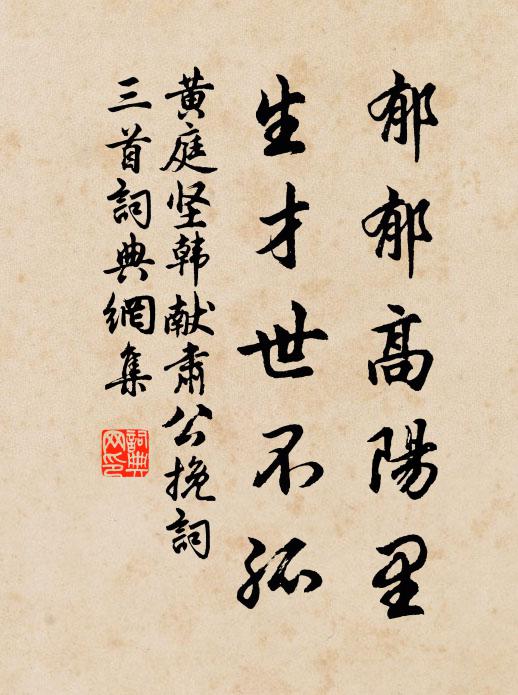 郁郁高陽里
生才世不孤
黄庭坚韩献肃公挽詞
三首詞典網集
詞典
网印